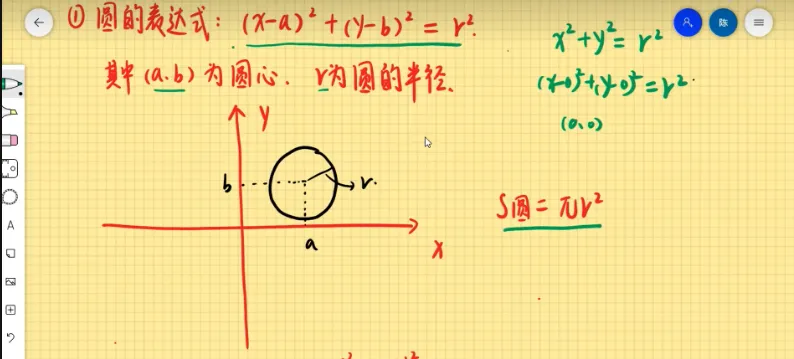 ① 圆的表达式: (x-a)² + (y-b)² = r².
其中 (a.b) 为圆心. r为圆的半径.
x² + y² = r²
(x-0)²+(y-0)² = r².
(0,0)
陈
A
y
b
r.
a
x
S圆 = πr²